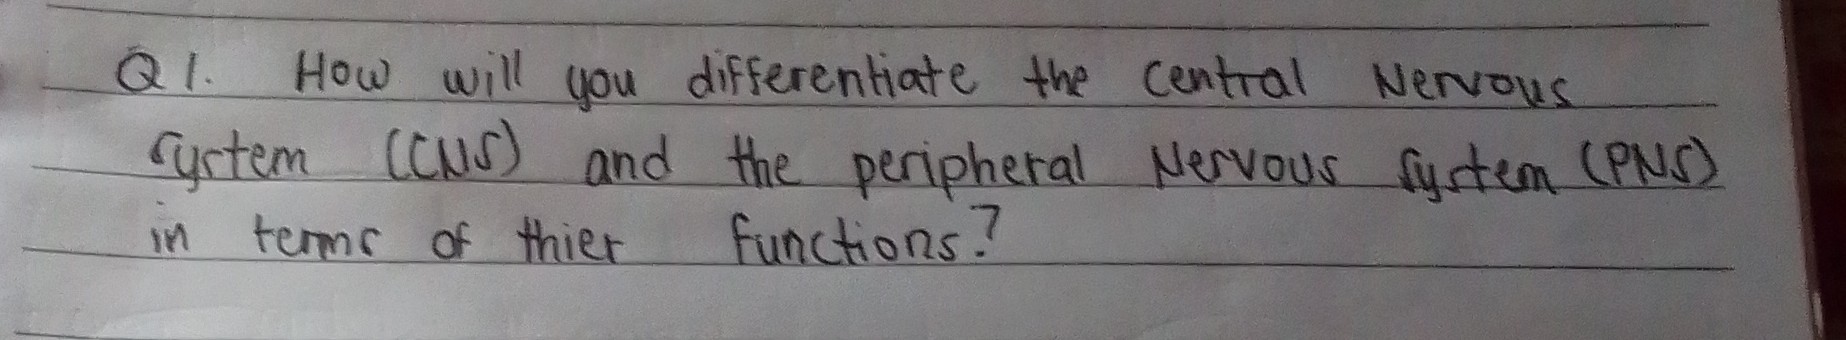 Q1. How will you differentiate the central Nervous
system (CNS) and the peripheral Nervous system (PNS)
in terms of thier functions?